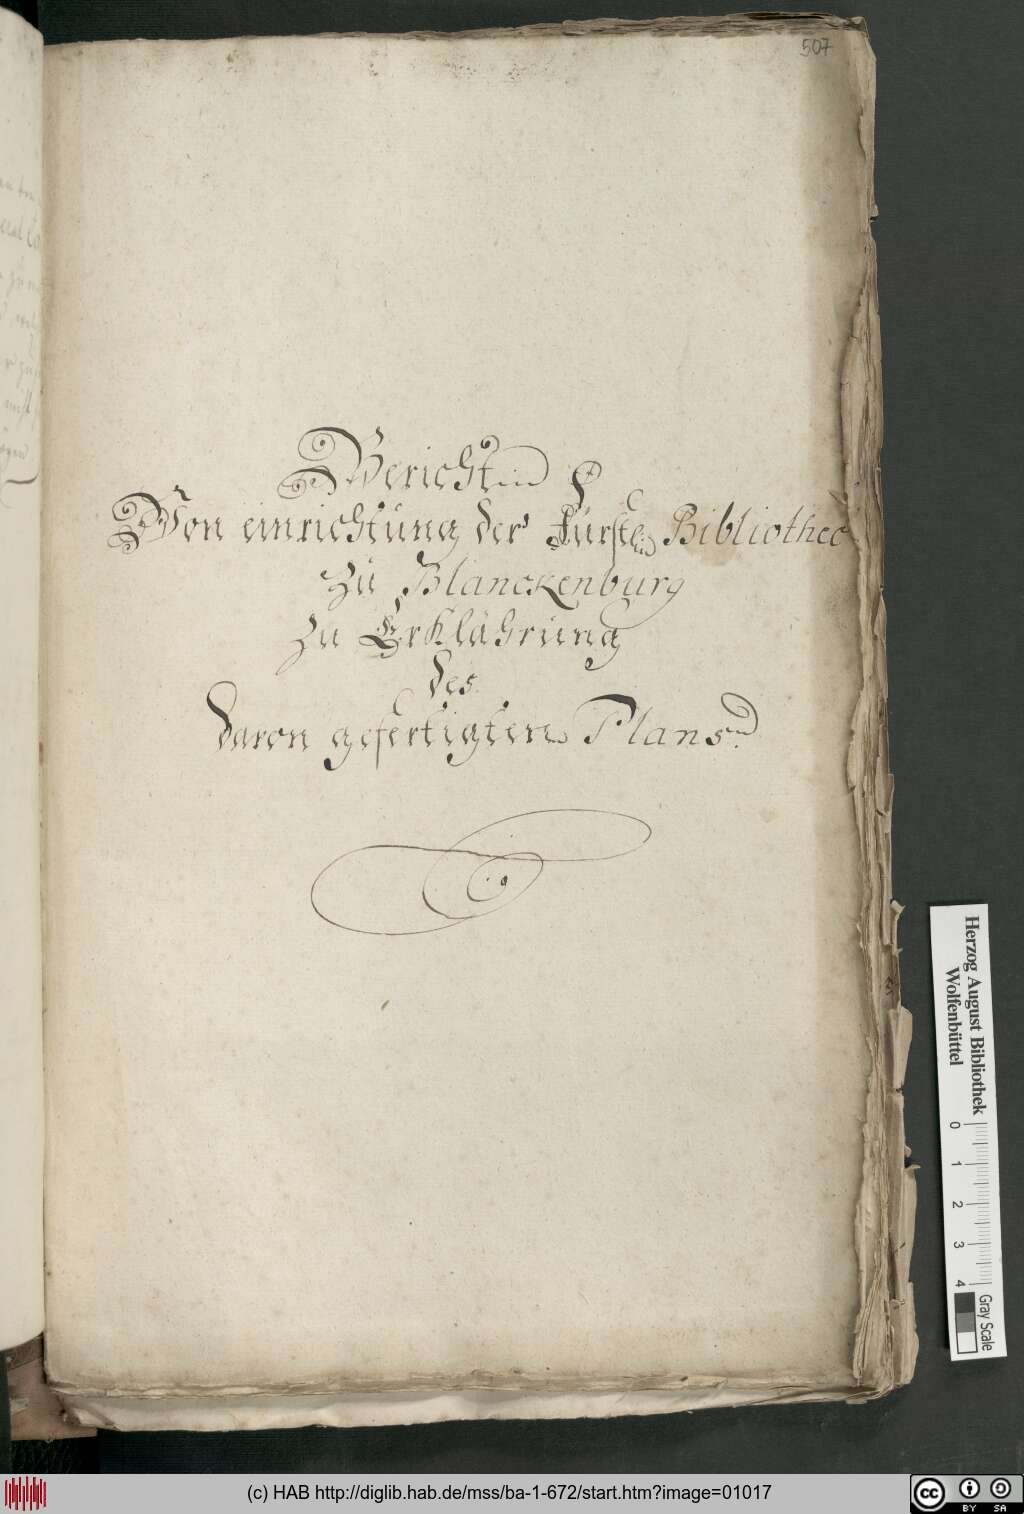 507
Bericht
Von einrichtung der Fürstl. Bibliothec
zu Blanckenburg
zu Erklährung
des
davon gefertigten Plans.
Herzog August Bibliothek
Wolfenbüttel
0 1 2 3 4
Gray Scale
(c) HAB http://diglib.hab.de/mss/ba-1-672/start.htm?image=01017
cc BY SA